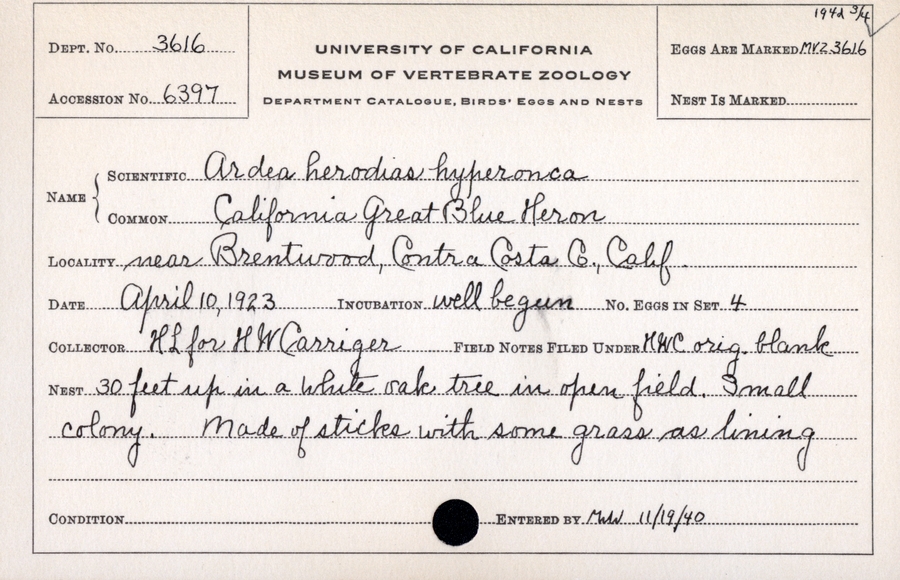 194d 3/4
DEPT. NO. 3616
UNIVERSITY OF CALIFORNIA
EGGS ARE MARKED MVZ 3616
MUSEUM OF VERTEBRATE ZOOLOGY
ACCESSION NO. 6397
DEPARTMENT CATALOGUE, BIRDS' EGGS AND NESTS
NEST IS MARKED
NAME
SCIENTIFIC Ardea herodias hyperonca
COMMON California Great Blue Heron
LOCALITY near Brentwood, Contra Costa Co., Calif.
DATE April 10, 1923 INCUBATION well begun NO. EGGS IN SET 4
COLLECTOR HL for HWCarriger FIELD NOTES FILED UNDER HWC orig. blank
NEST 30 feet up in a white oak tree in open field. Small
colony. Made of sticks with some grass as lining
CONDITION ENTERED BY 11/19/40